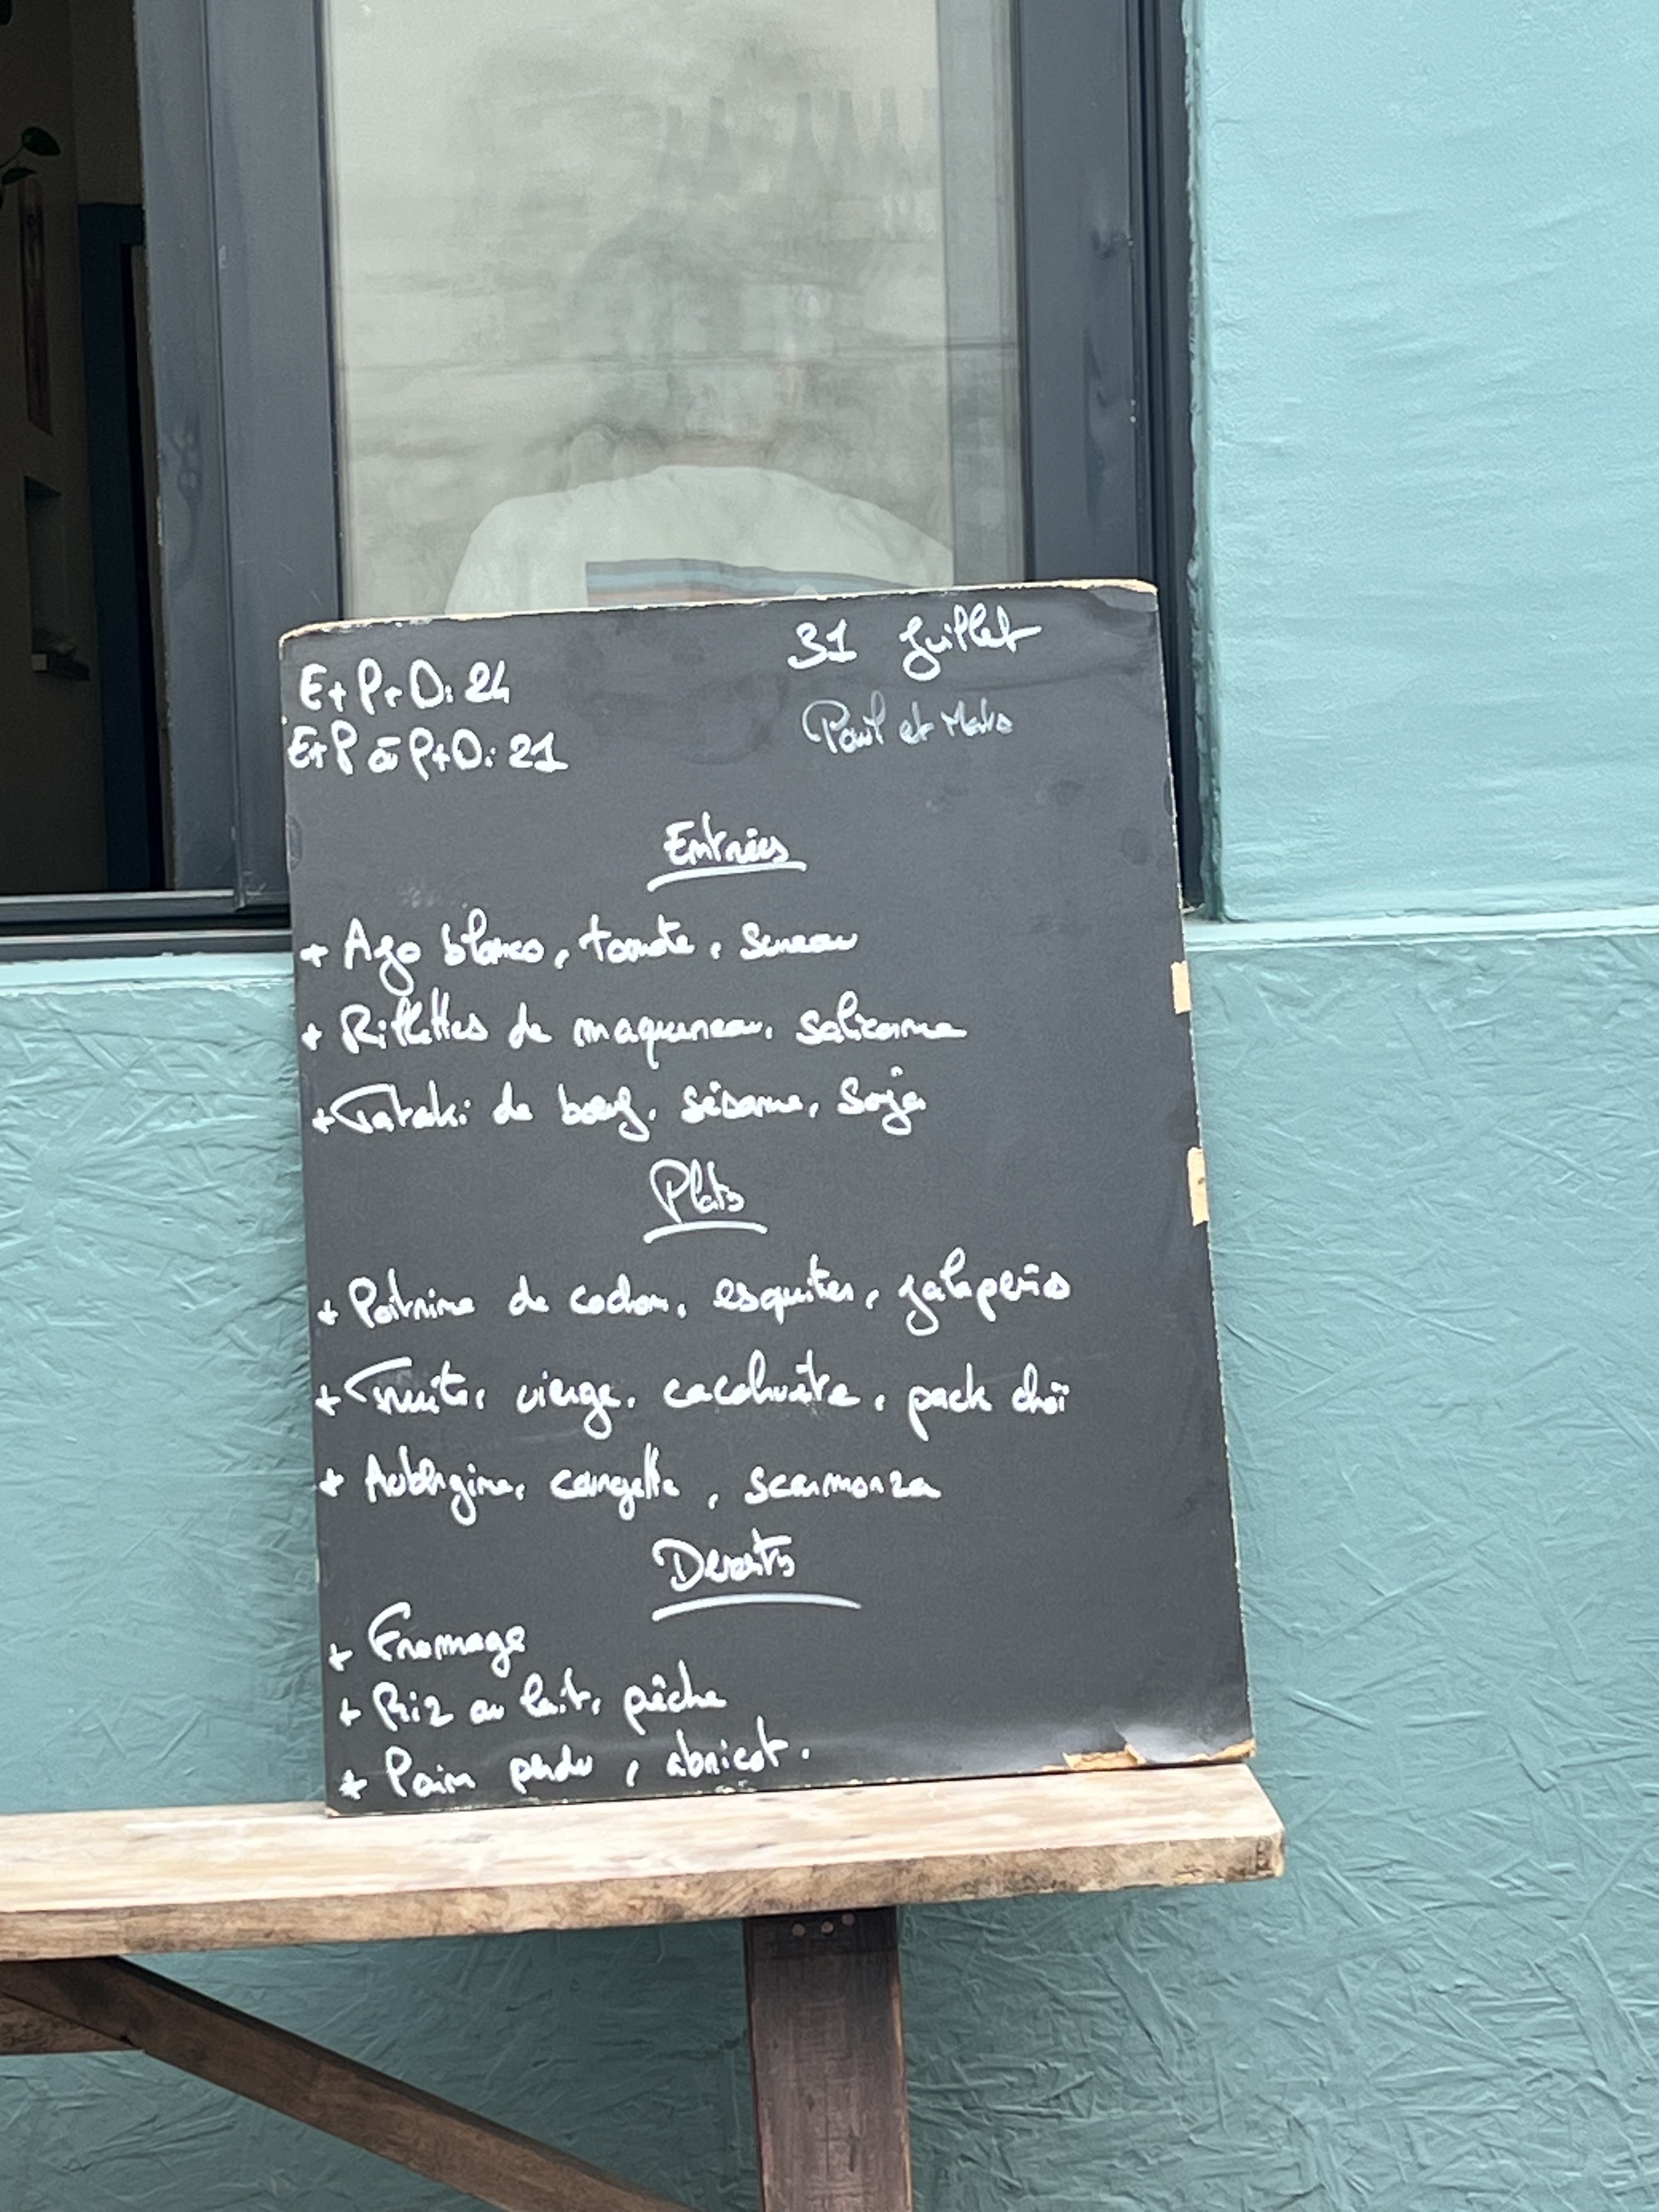 31 Juillet
E+P+D: 24
Paul et Malo
E+P ou P+D: 21
Entrées
+ Ajo blanco, tomate, sureau
+ Rillettes de maquereau, salicorne
+ Tataki de bœuf, sésame, soja
Plats
+ Poitrine de cochon, esquites, jalapeños
+ Truite, vierge, cacahuète, pack choï
+ Aubergine, courgette, scarmorza
Desserts
+ Fromage
+ Riz au lait, pêche
+ Pain perdu, abricot.